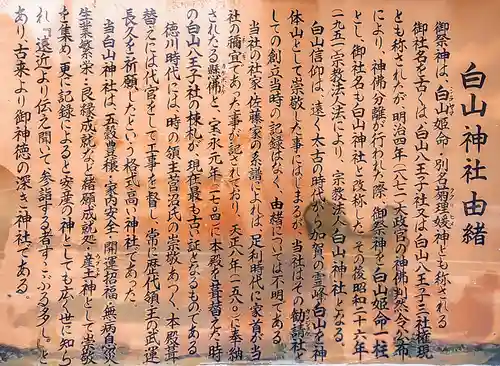 白山神社 由緒
御祭神は、白山姫命 別名菊理媛神とも称される
御社名を古くは、白山八王子社又は白山八王子三社権現
とも称されたが、明治四年(一八七一)太政官の神佛判然令公布
により、神佛分離が行われた際、御祭神を白山姫命一柱
とし、御社名も白山神社と改称した。その後昭和二十六年
(一九五一)宗教法人法により、宗教法人 白山神社となる。
白山信仰は、遠く太古の時代から加賀の霊峰白山を神
体山として崇敬した事にはじまるが、当社はその勧請社と
しての創立当時の記録はなく、由緒については不明である。
当社の社家、佐藤家の系譜によれば、足利時代に家首が当
社の禰宜であった事が記されており、天正八年(一五八〇)に奉納
された懸佛と、宝永元年(一七〇四)に本殿を葺替えた時
の白山八王子社の棟札が、現在最も古い証となるものである。
徳川時代には、時の領主宮沼氏の崇敬あつく、本殿葺
替えには代官をして工事を督し、常に歴代領主の武運
長久を祈願したという格式高い神社であった。
尚当神社は、五穀豊穣・家内安全・開運招福・無病息災・
生業繁栄・良縁成就など諸願成就処・産土神として崇敬
を集め、更に記録によると安産の神としても広く世に知ら
れ『遠近より伝え聞て参詣する者すこぶる多し。』と
あり、古来より御神徳の深き神社である。